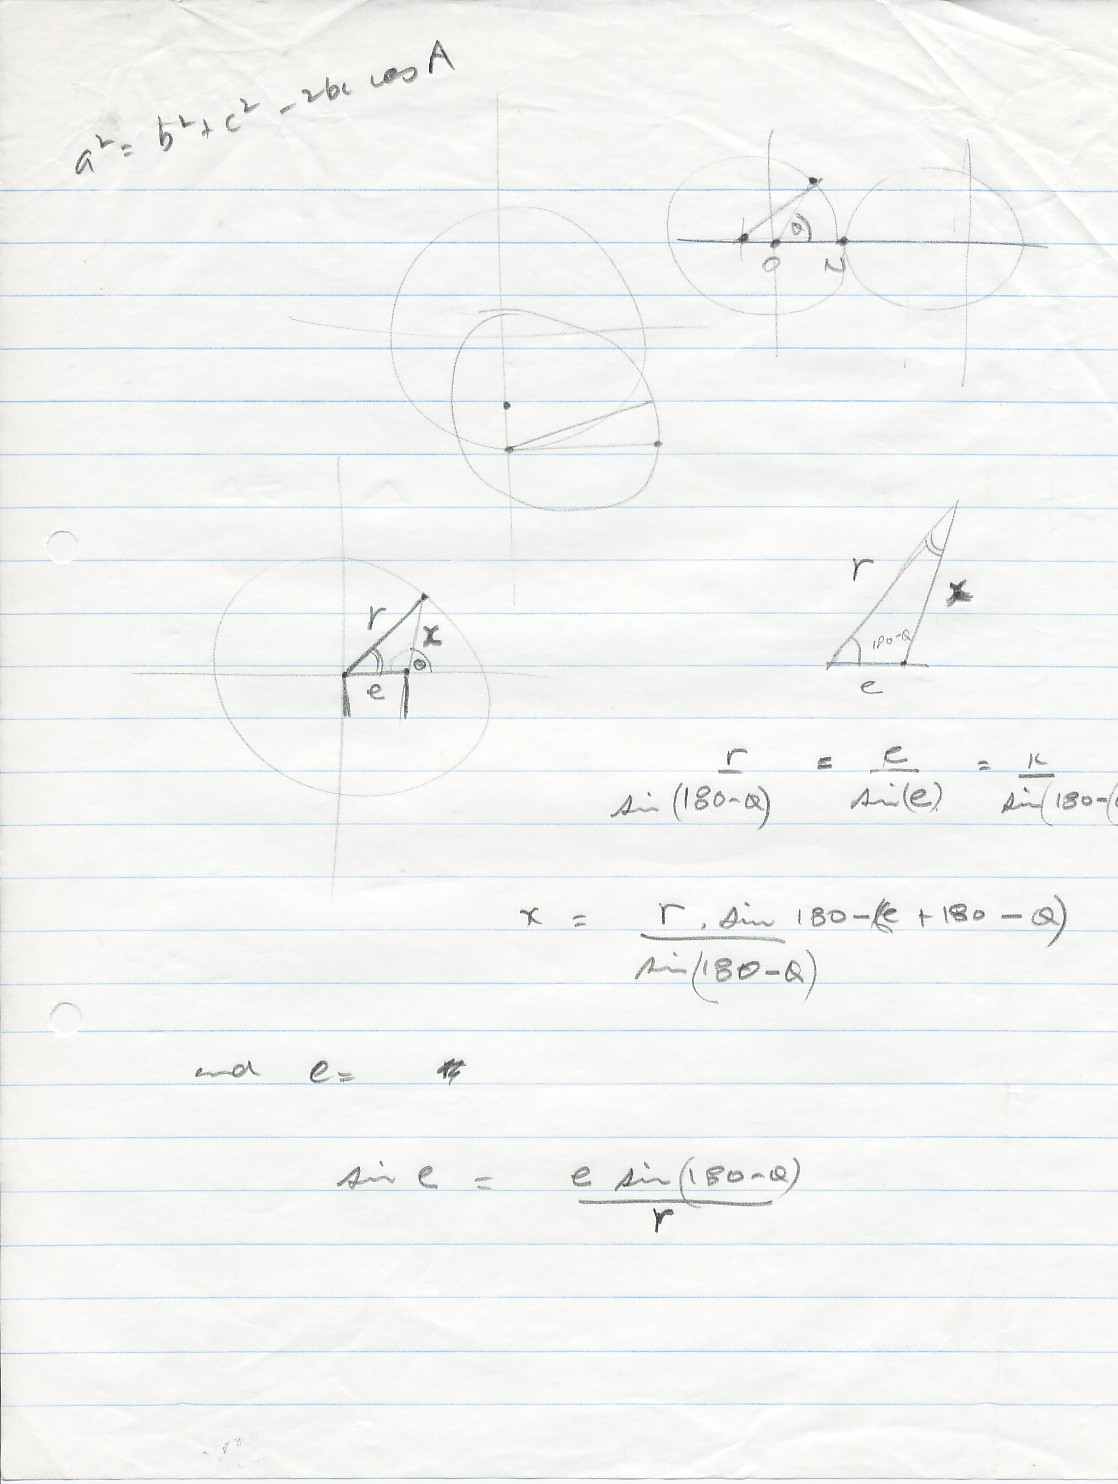 a² = b² + c² - 2bc cos A
θ
O N
r
x
θ
e
r
x
180-θ
e
r/sin(180-θ) = e/sin(e) = x/sin(180-(
x = r. sin 180-(e + 180 - θ)/sin(180-θ)
and e =
sin e = e sin(180-θ)/r